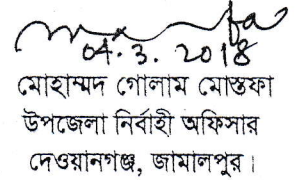 04.3.2018
মোহাম্মদ গোলাম মোস্তফা
উপজেলা নির্বাহী অফিসার
দেওয়ানগঞ্জ, জামালপুর।